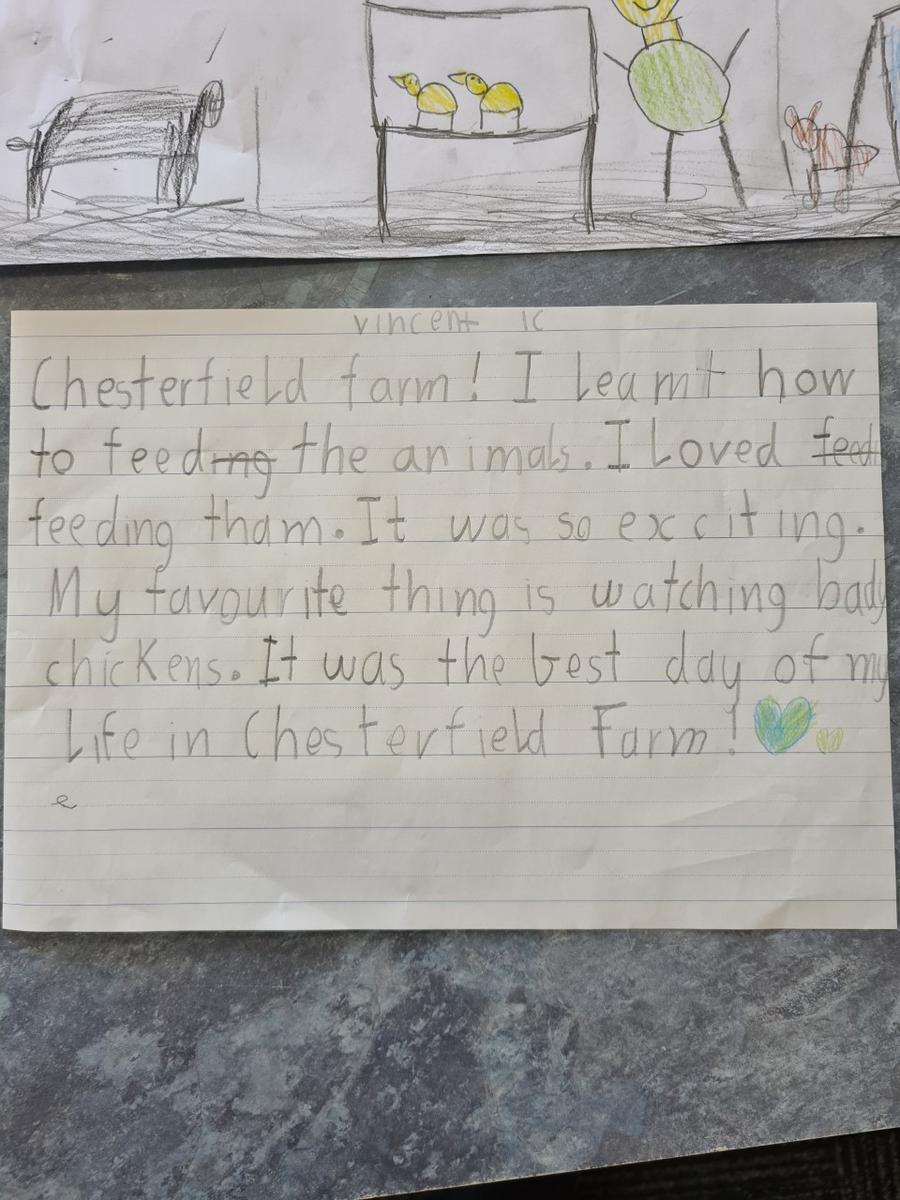 vincent 1C
Chesterfield farm! I Learnt how
to feeding the animals. I Loved feedi
feeding tham. It was so exciting.
My favourite thing is watching bady
chickens. It was the best day of my
Life in Chesterfield Farm!
e